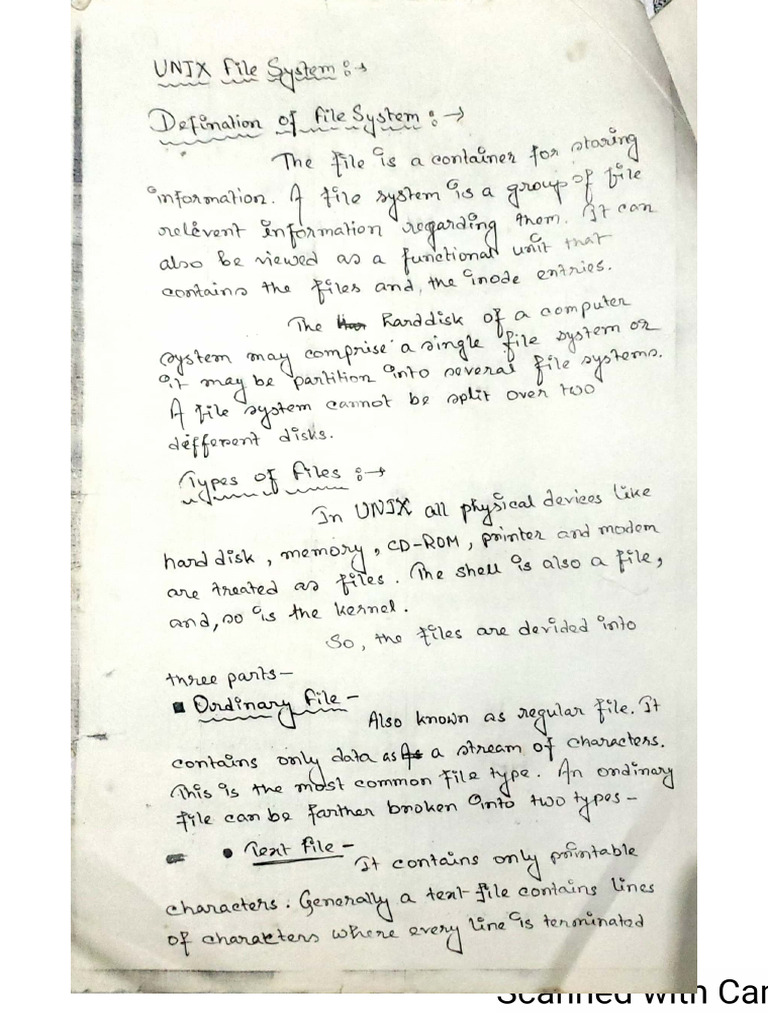 UNIX File System :→
Defination of File System :→
The file is a container for storing
information. A file system is a group of file
relevent information regarding them. It can
also be viewed as a functional unit that
contains the files and, the inode entries.
The harddisk of a computer
system may comprise a single file system or
it may be partition into several file systems.
A file system cannot be split over two
different disks.
Types of Files :→
In UNIX all physical devices like
hard disk, memory, CD-ROM, printer and modem
are treated as files. The shell is also a file,
and, so is the kernel.
So, the files are devided into
three parts—
▪ Ordinary File —
Also known as regular file. It
contains only data as a stream of characters.
This is the most common file type. An ordinary
file can be farther broken into two types —
• Text File —
It contains only printable
characters. Generally a text file contains lines
of characters where every line is terminated
Scanned with Cam